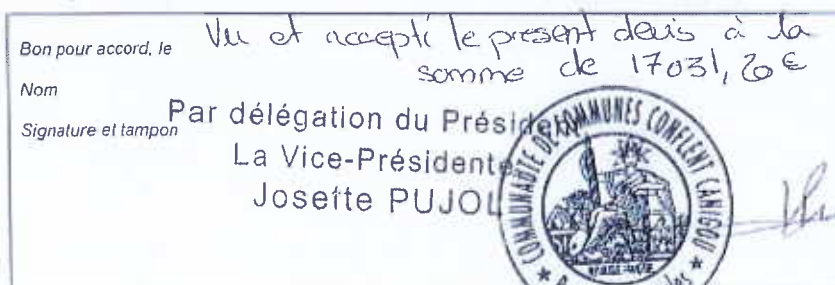 Bon pour accord, le Vu et accepté le présent devis à la
somme de 17031,20 €
Nom
Signature et tampon Par délégation du Président
La Vice-Présidente
Josette PUJOL
COMMUNAUTÉ DE COMMUNES CONFLENT CANIGOU